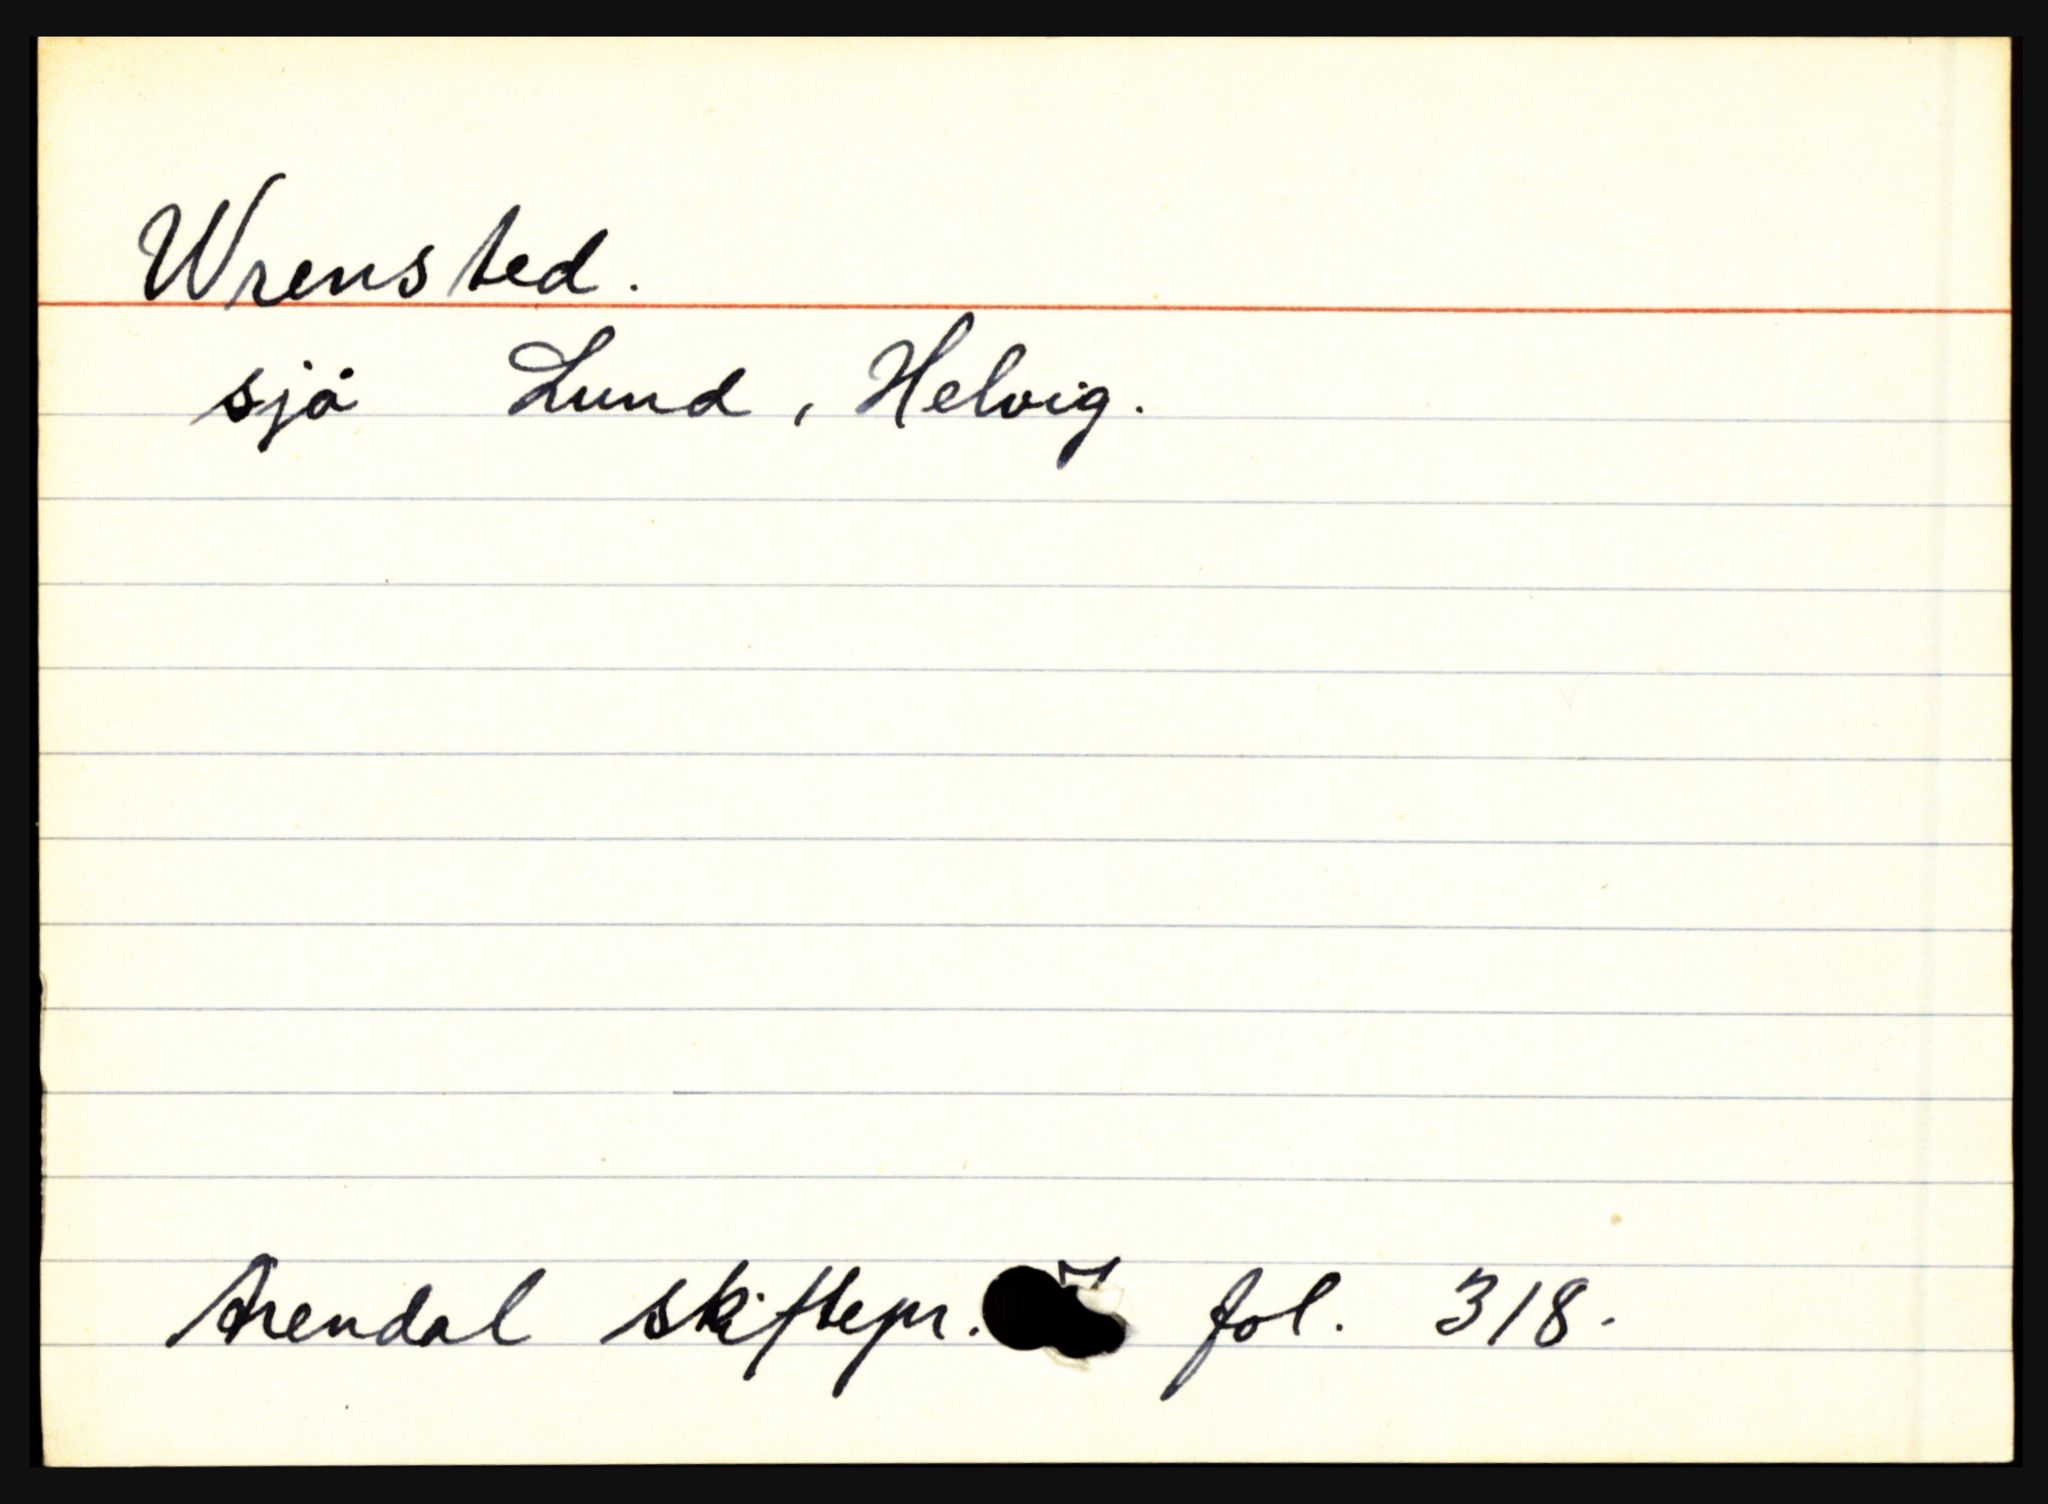 Wrensted.
sjå Lund, Helvig.
Arendal skiftepr. fol. 318.